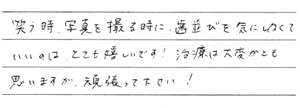 笑う時、写真を撮る時に、歯並びを気にしなくて
いいのは、とても嬉しいです！治療は大変かとも
思いますが、頑張って下さい！